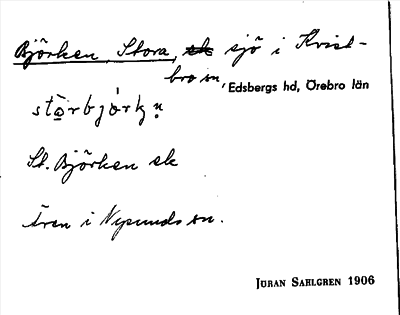 Björken, Stora, sjö i Kvist-
bro sn, Edsbergs hd, Örebro län
stòrbjörkn
St. Björken ek
Även i Nysunds sn.
JÖRAN SAHLGREN 1906